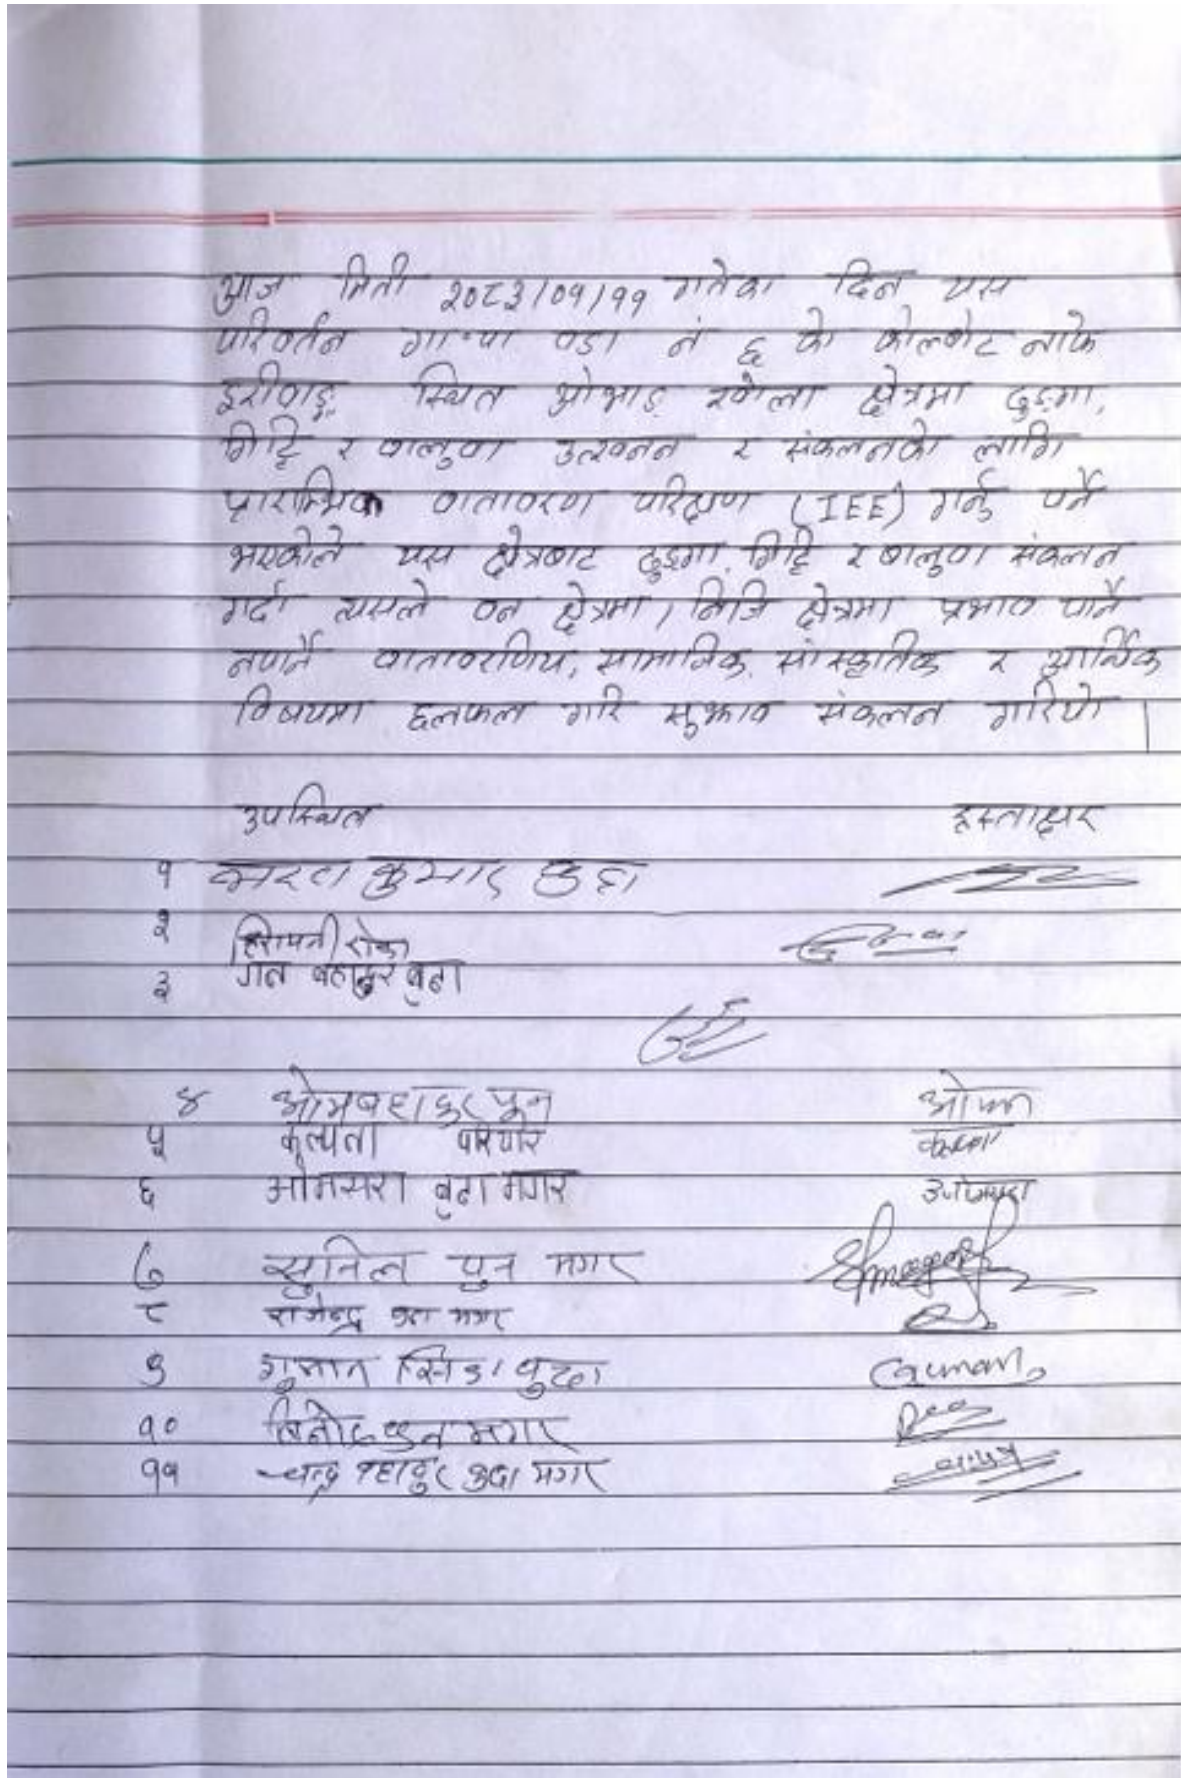 आज मिती २०८३/०१/११ गतेका दिन यस
परिवर्तन गा.पा वडा नं ६ को कोलबोट नाके
इरीवाङ्ग स्थित ओभाङ खोला क्षेत्रमा ढुङ्गा,
गिट्टि र वालुवा उत्खनन र संकलनको लागि
प्रारम्भिक वातावरण परिक्षण (IEE) गर्नु पर्ने
भएकोले यस क्षेत्रबाट ढुङ्गा, गिट्टि र वालुवा संकलन
गर्दा त्यसले वन क्षेत्रमा, निजि क्षेत्रमा प्रभाव पार्ने
नपार्ने वातावरणिय, सामाजिक, सांस्कृतिक र आर्थिक
विषयमा छलफल गरि सुझाव संकलन गरियो |
उपस्थित हस्ताक्षर
१ भरत कुमार बुढा
२ हिरामनी रोका
३ गत बहादुर बुढा
४ ओमबहादुर पुन ओम
५ कल्पना परियार कल्पना
६ ओमसरा बुढा मगर
७ सुनिल पुन मगर
८ राजेन्द्र बुढा मगर
९ गुमान सिंङ बुढा Guman
१० बिनोद पुन मगर
११ चन्द्र बहादुर बुढा मगर